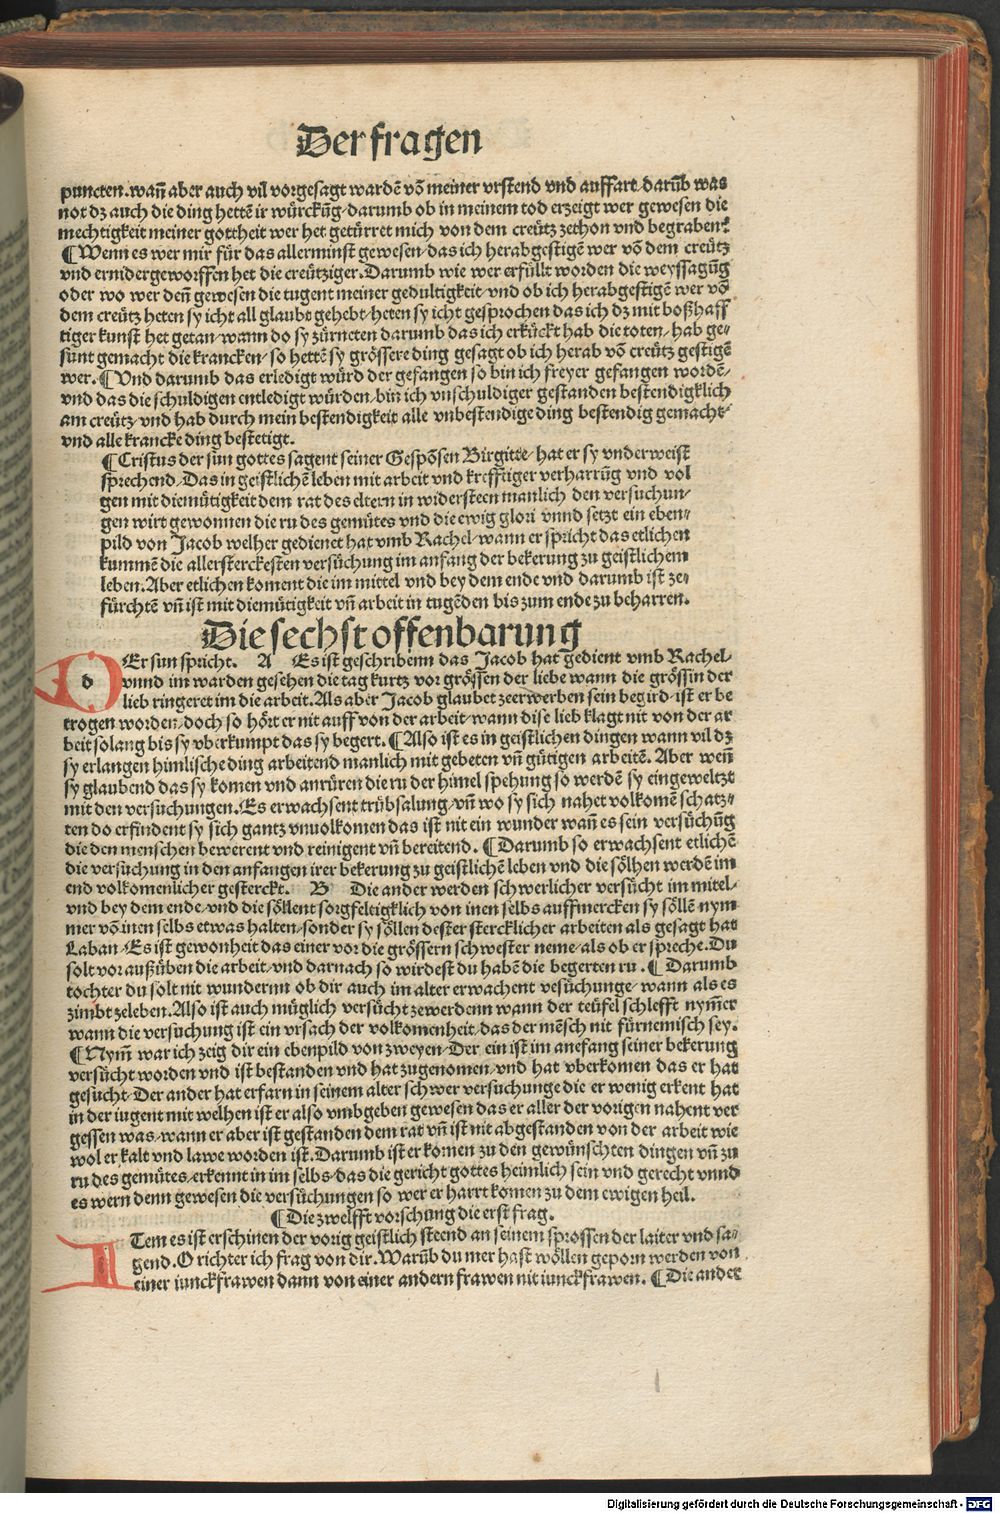 Der fragen
puncten. wañ aber auch vil vorgesagt wardē võ meiner vrstend vnd auffart/ darūb was
not dz auch die ding hettē ir würckũg/ darumb ob in meinem tod erzeigt wer gewesen die
mechtigkeit meiner gottheit wer het getürret mich von dem creütz zethon vnd begraben?
¶ Wenn es wer mir für das allerminst gewesen/ das ich herabgestigē wer võ dem creütz
vnd ernidergeworffen het die creütziger. Darumb wie wer erfüllt worden die weyssagūg
oder wo wer deñ gewesen die tugent meiner gedultigkeit/ vnd ob ich herabgestigē wer võ
dem creütz heten sy icht all glaubt gehebt/ heten sy icht gesprochen das ich dz mit boßhaff
tiger kunst het getan/ wann do sy zürneten darumb das ich erkückt hab die toten/ hab ge⸗
sunt gemacht die krancken/ so hettē sy grössere ding gesagt ob ich herab võ creütz gestigē
wer. ¶ Vnd darumb das erledigt würd der gefangen so bin ich freyer gefangen wordē/
vnd das die schuldigen entledigt würden/ bin ich vnschuldiger gestanden bestendigklich
am creütz/ vnd hab durch mein bestendigkeit alle vnbestendige ding bestendig gemacht/
vnd alle krancke ding bestetigt.
¶ Cristus der sun gottes sagent seiner Gespõsen Birgitte/ hat er sy vnderweist
sprechend/ Das in geistlichē leben mit arbeit vnd krefftiger verharrūg vnd vol
gen mit diemütigkeit dem rat des eltern in widersteen manlich den versuchun⸗
gen wirt gewonnen die ru des gemütes vnd die ewig glori vnnd setzt ein eben⸗
pild von Jacob welher gedienet hat vmb Rachel/ wann er spricht das etlichen
kummē die allersterckesten versüchung im anfang der bekerung zu geistlichem
leben. Aber etlichen koment die im mittel vnd bey dem ende vnd darumb ist ze⸗
fürchtē vñ ist mit diemütigkeit vñ arbeit in tugēden bis zum ende zu beharren.
Die sechst offenbarung
d Er sun spricht. A Es ist geschribenn das Jacob hat gedient vmb Rachel/
vnnd im warden gesehen die tag kurtz vor grössen der liebe wann die grössin der
lieb ringeret im die arbeit. Als aber Jacob glaubet zeerwerben sein begird/ ist er be
trogen worden/ doch so hört er nit auff von der arbeit/ wann dise lieb klagt nit von der ar
beit solang bis sy vberkumpt das sy begert. ¶ Also ist es in geistlichen dingen wann vil dz
sy erlangen himlische ding arbeitend manlich mit gebeten vñ gütigen arbeitē. Aber weñ
sy glaubend das sy komen vnd anrüren die ru der himel spehung so werdē sy eingeweltzt
mit den versuchungen. Es erwachsent trübsalung/ vñ wo sy sich nahet volkomē schatz⸗
ten do erfindent sy sich gantz vnuolkomen das ist nit ein wunder wañ es sein versüchūg
die den menschen bewerent vnd reinigent vñ bereitend. ¶ Darumb so erwachsent etlichē
die versuchung in den anfangen irer bekerung zu geistlichē leben vnd die sölhen werdē im
end volkomenlicher gesterckt. B Die ander werden schwerlicher versücht im mitel/
vnd bey dem ende/ vnd die söllent sorgfeltigklich von inen selbs auffmercken sy söllē nym
mer võ inen selbs etwas halten/ sonder sy söllen dester stercklicher arbeiten als gesagt hat
Laban/ Es ist gewonheit das einer vor die grössern schwester neme/ als ob er spreche. Du
solt vor außüben die arbeit/ vnd darnach so wirdest du habē die begerten ru. ¶ Darumb
tochter du solt nit wundernn ob dir auch im alter erwachent vesüchunge/ wann als es
zimbt zeleben. Also ist auch müglich versücht zewerdenn wann der teüfel schlefft nym̄er
wann die versuchung ist ein vrsach der volkomenheit/ das der mēsch nit fürnemisch sey.
¶ Nym̄ war ich zeig dir ein ebenpild von zweyen/ Der ein ist im anefang seiner bekerung
versücht worden vnd ist bestanden vnd hat zugenomen/ vnd hat vberkomen das er hat
gesucht/ Der ander hat erfarn in seinem alter schwer versuchunge die er wenig erkent hat
in der iugent mit welhen ist er also vmbgeben gewesen das er aller der vorigen nahent ver
gessen was/ wann er aber ist gestanden dem rat vñ ist nit abgestanden von der arbeit wie
wol er kalt vnd lawe worden ist. Darumb ist er komen zu den gewünschten dingen vñ zu
ru des gemütes/ erkennt in im selbs/ das die gericht gottes heimlich sein vnd gerecht vnnd
es wern denn gewesen die versüchungen so wer er harrt komen zu dem ewigen heil.
¶ Die zwelfft vorschung die erst frag.
I Tem es ist erschinen der vorig geistlich steend an seinem sprossen der laiter vnd sa⸗
gend. O richter ich frag von dir. Warūb du mer hast wöllen geporn werden von
einer iunckfrawen dann von einer andern frawen nit iunckfrawen. ¶ Die ander
Digitalisierung gefördert durch die Deutsche Forschungsgemeinschaft - DFG